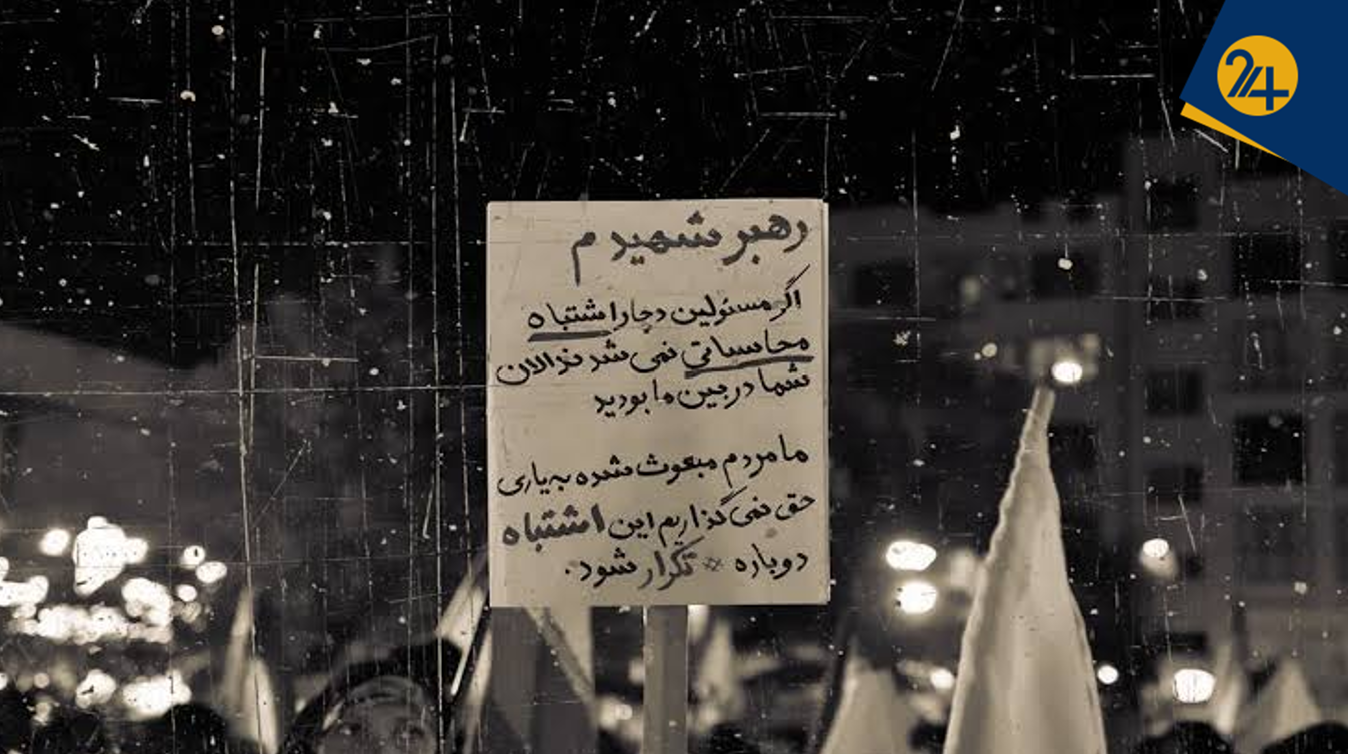 24
رهبر شهیدم
اگر مسئولین دچار اشتباه
محاسباتی نمی شدند الان
شما در بین ما بودید
ما مردم مبعوث شده به یاری
حق نمی گذاریم این اشتباه
دوباره تکرار شود.